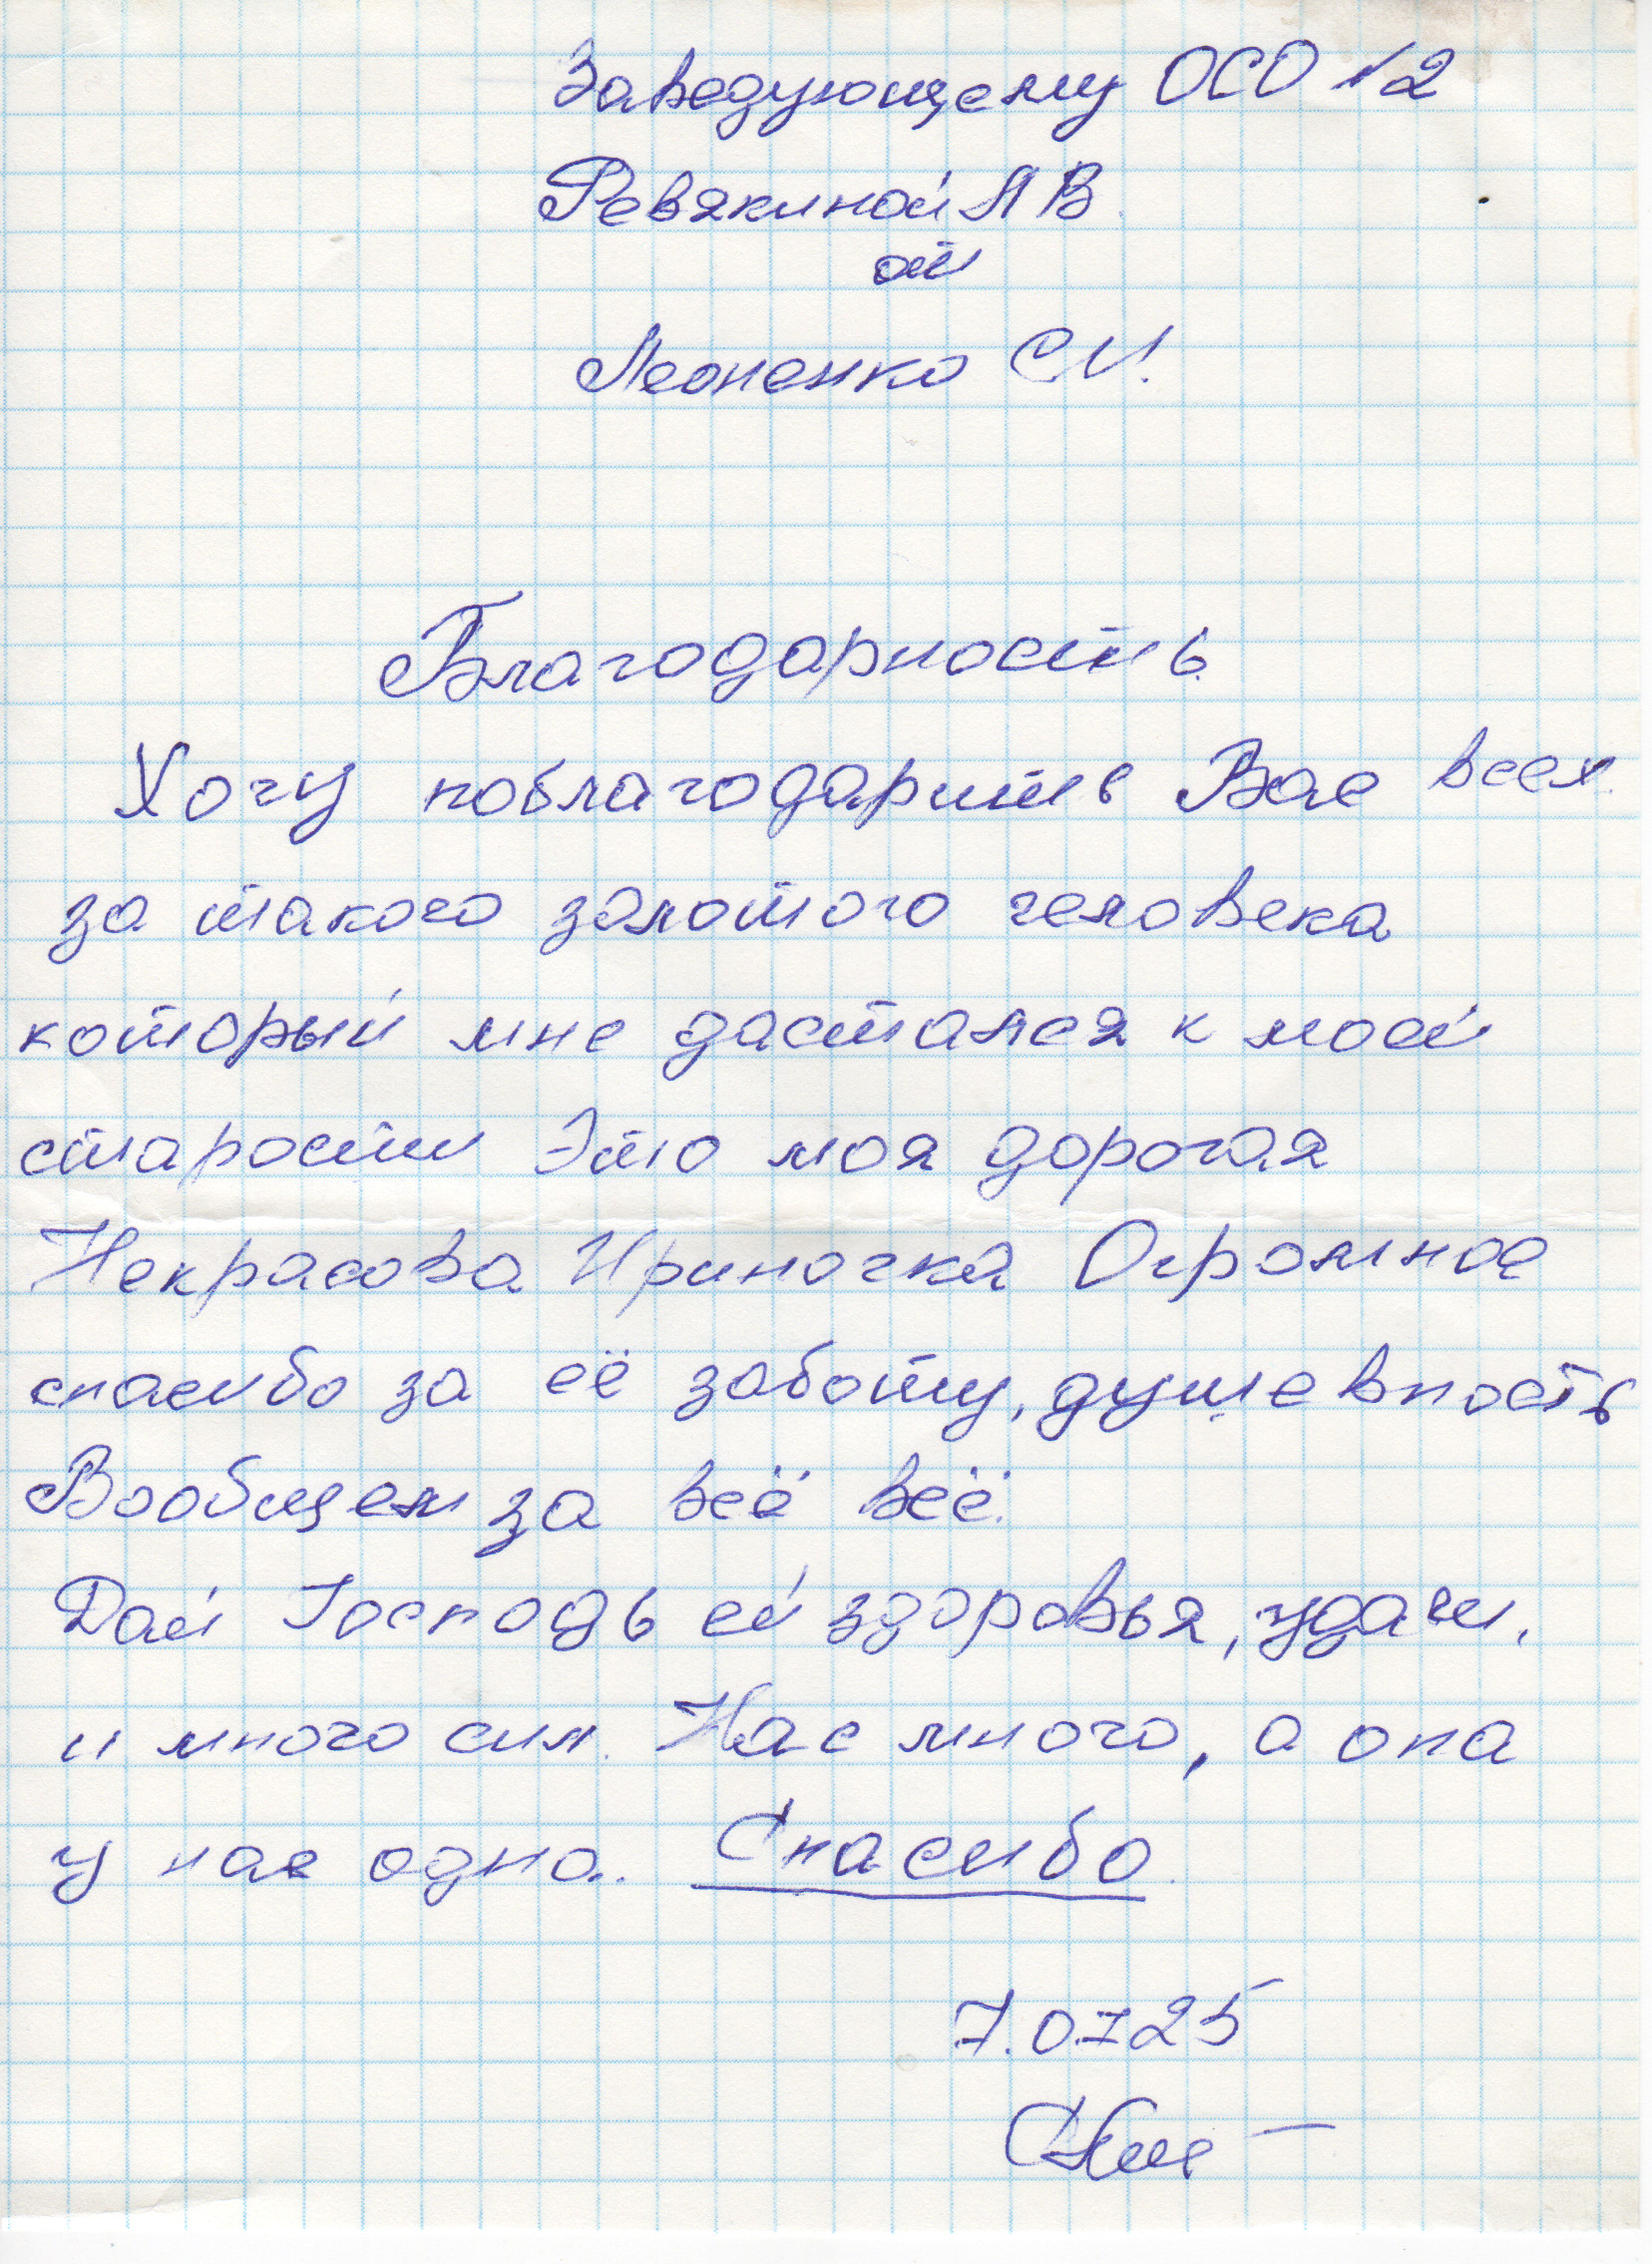 Заведующему ОСО №2
Ревякиной Л В.
от
Леоненко С И.
Благодарность.
Хочу поблагодарить Вас всех.
за такого золотого человека
который мне достался к моей
старости Это моя дорогая
Некрасова Ириночка Огромное
спасибо за её заботу, душевность
Вообщем за всё всё.
Дай Господь ей здоровья, удачи,
и много сил. Нас много, а она
у нас одна. Спасибо.
7.07 25